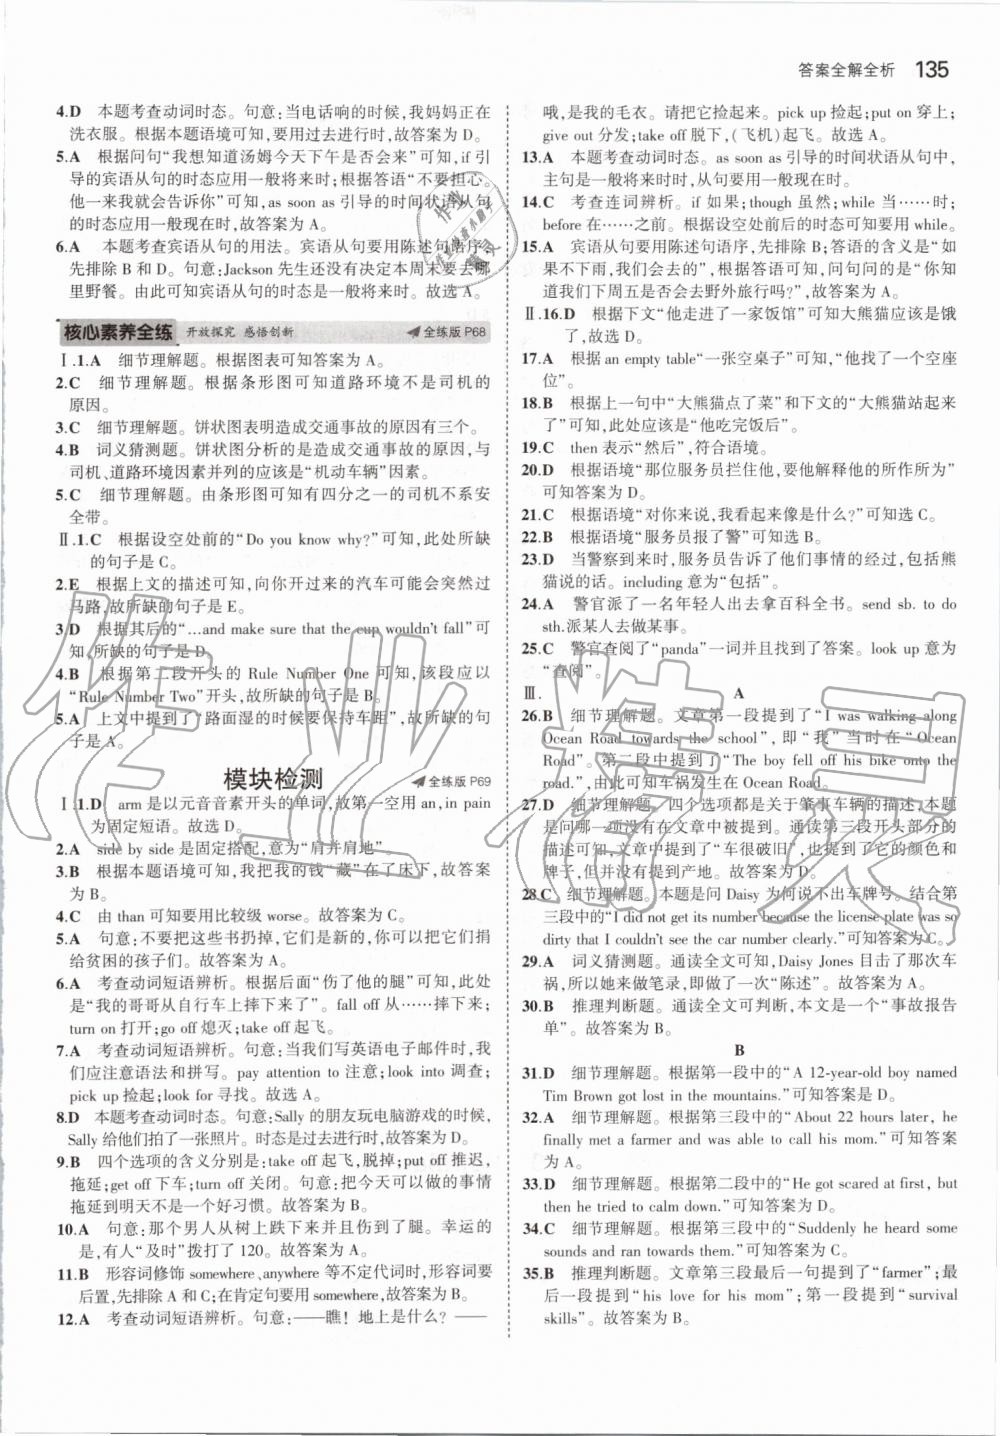 答案全解全析 135
4.D 本题考查动词时态。句意:当电话响的时候,我妈妈正在
洗衣服。根据本题语境可知,要用过去进行时,故答案为 D。
5.A 根据问句“我想知道汤姆今天下午是否会来”可知,if 引
导的宾语从句的时态应用一般将来时;根据答语“不要担心。
他一来我就会告诉你”可知,as soon as 引导的时间状语从句
的时态应用一般现在时,故答案为 A。
6.A 本题考查宾语从句的用法。宾语从句要用陈述句语序,
先排除 B 和 D。句意:Jackson 先生还没有决定本周末要去哪
里野餐。由此可知宾语从句的时态是一般将来时。故选 A。
核心素养全练 开放探究 感悟创新 全练版 P68
Ⅰ.1.A 细节理解题。根据图表可知答案为 A。
2.C 细节理解题。根据条形图可知道路环境不是司机的
原因。
3.C 细节理解题。饼状图表明造成交通事故的原因有三个。
4.B 词义猜测题。饼状图分析的是造成交通事故的原因,与
司机、道路环境因素并列的应该是“机动车辆”因素。
5.C 细节理解题。由条形图可知有四分之一的司机不系安
全带。
Ⅱ.1.C 根据设空处前的“Do you know why?”可知,此处所缺
的句子是 C。
2.E 根据上文的描述可知,向你开过来的汽车可能会突然过
马路,故所缺的句子是 E。
3.D 根据其后的“…and make sure that the cup wouldn't fall”可
知,所缺的句子是 D。
4.B 根据第二段开头的 Rule Number One 可知,该段应以
“Rule Number Two”开头,故所缺的句子是 B。
5.A 上文中提到了“路面湿的时候要保持车距”,故所缺的句
子是 A。
模块检测 全练版 P69
Ⅰ.1.D arm 是以元音音素开头的单词,故第一空用 an,in pain
为固定短语。故选 D。
2.A side by side 是固定搭配,意为“肩并肩地”。
3.B 根据本题语境可知,我把我的钱“藏”在了床下,故答案
为 B。
4.C 由 than 可知要用比较级 worse。故答案为 C。
5.A 句意:不要把这些书扔掉,它们是新的,你可以把它们捐
给贫困的孩子们。故答案为 A。
6.A 考查动词短语辨析。根据后面“伤了他的腿”可知,此处
是“我的哥哥从自行车上摔下来了”。fall off 从……摔下来;
turn on 打开;go off 熄灭;take off 起飞。
7.A 考查动词短语辨析。句意:当我们写英语电子邮件时,我
们应注意语法和拼写。pay attention to 注意;look into 调查;
pick up 捡起;look for 寻找。故选 A。
8.D 本题考查动词时态。句意:Sally 的朋友玩电脑游戏的时候,
Sally 给他们拍了一张照片。时态是过去进行时,故答案为 D。
9.B 四个选项的含义分别是:take off 起飞,脱掉;put off 推迟,
拖延;get off 下车;turn off 关闭。句意:把今天可以做的事情
拖延到明天不是一个好习惯。故答案为 B。
10.A 句意:那个男人从树上跌下来并且伤到了腿。幸运的
是,有人“及时”拨打了 120。故答案为 A。
11.B 形容词修饰 somewhere、anywhere 等不定代词时,形容词要
后置,先排除 A 和 C;在肯定句要用 somewhere。故答案为 B。
12.A 考查动词短语辨析。句意:——瞧!地上是什么?——
哦,是我的毛衣。请把它捡起来。pick up 捡起;put on 穿上;
give out 分发;take off 脱下,(飞机)起飞。故选 A。
13.A 本题考查动词时态。as soon as 引导的时间状语从句中,
主句是一般将来时,从句是一般现在时。
14.C 考查连词辨析。if 如果;though 虽然;while 当……时;
before 在……之前。根据设空处前后的时态可知要用 while。
15.A 宾语从句要用陈述句语序,先排除 B;答语的含义是“如
果不下雨的话,我们会去”,根据答语可知,问句问的是“你知
道我们下周五是否会去野外旅行吗?”,故答案为 A。
Ⅱ.16.D 根据下文“他走进了一家饭馆”可知大熊猫应该是饿
了,故选 D。
17.A 根据 an empty table“一张空桌子”可知,“他找了一个空座
位”。
18.B 根据上一句中“大熊猫点了菜”和下文的“大熊猫站起来
了”可知,此处应该是“他吃完饭后”。
19.C then 表示“然后”,符合语境。
20.D 根据语境“那位服务员拦住他,要他解释他的所作所为”
可知答案为 D。
21.C 根据语境“对你来说,我看起来像是什么?”可知选 C。
22.B 根据语境“服务员报了警”可知选 B。
23.D 当警察到来时,服务员告诉了他们事情的经过,包括熊
猫说的话。including 意为“包括”。
24.A 警官派了一名年轻人出去拿百科全书。send sb. to do
sth.派某人去做某事。
25.C 警官查阅了“panda”一词并且找到了答案。look up 意为
“查阅”。
Ⅲ. A
26.B 细节理解题。文章第一段提到了“I was walking along
Ocean Road towards the shopping center”,即“我”当时在“Ocean
Road”。第二段中提到了“The boy fell off his bike onto the
road.”,由此可知车祸发生在 Ocean Road。
27.D 细节理解题。四个选项都是关于肇事车辆的描述,本题
是问哪一项没有在文章中被提到。通读第三段开头部分的
描写可知,文章中提到了“车很破旧”,也提到了它的颜色和
牌子,但并没有提到产地。故答案为 D。
28.C 细节理解题。本题是问 Daisy 为何说不出车牌号。结合第
三段中的“I did not get its number because the license plate was so
dirty that I couldn't see the car number clearly.”可知答案为 C。
29.A 词义猜测题。通读全文可知,Daisy Jones 目击了那次车
祸,所以她来做笔录,即做了一次“陈述”。故答案为 A。
30.B 推理判断题。通读全文可判断,本文是一个“事故报告
单”。故答案为 B。
B
31.D 细节理解题。根据第一段中的“A 12-year-old boy named
Tim Brown got lost in the mountains.”可知答案是 D。
32.A 细节理解题。根据第三段中的“About 22 hours later, he
finally met a farmer and was able to call his mom.”可知答案
为 A。
33.D 细节理解题。根据第二段中的“He got scared at first, but
then he tried to calm down.”可知答案为 D。
34.C 细节理解题。根据第三段中的“Suddenly he heard some
sounds and ran towards them.”可知答案为 C。
35.B 推理判断题。文章第三段最后一句提到了“farmer”;最
后一段提到“his love for his mom”;第一段提到了“survival
skills”。故答案为 B。
作业精灵